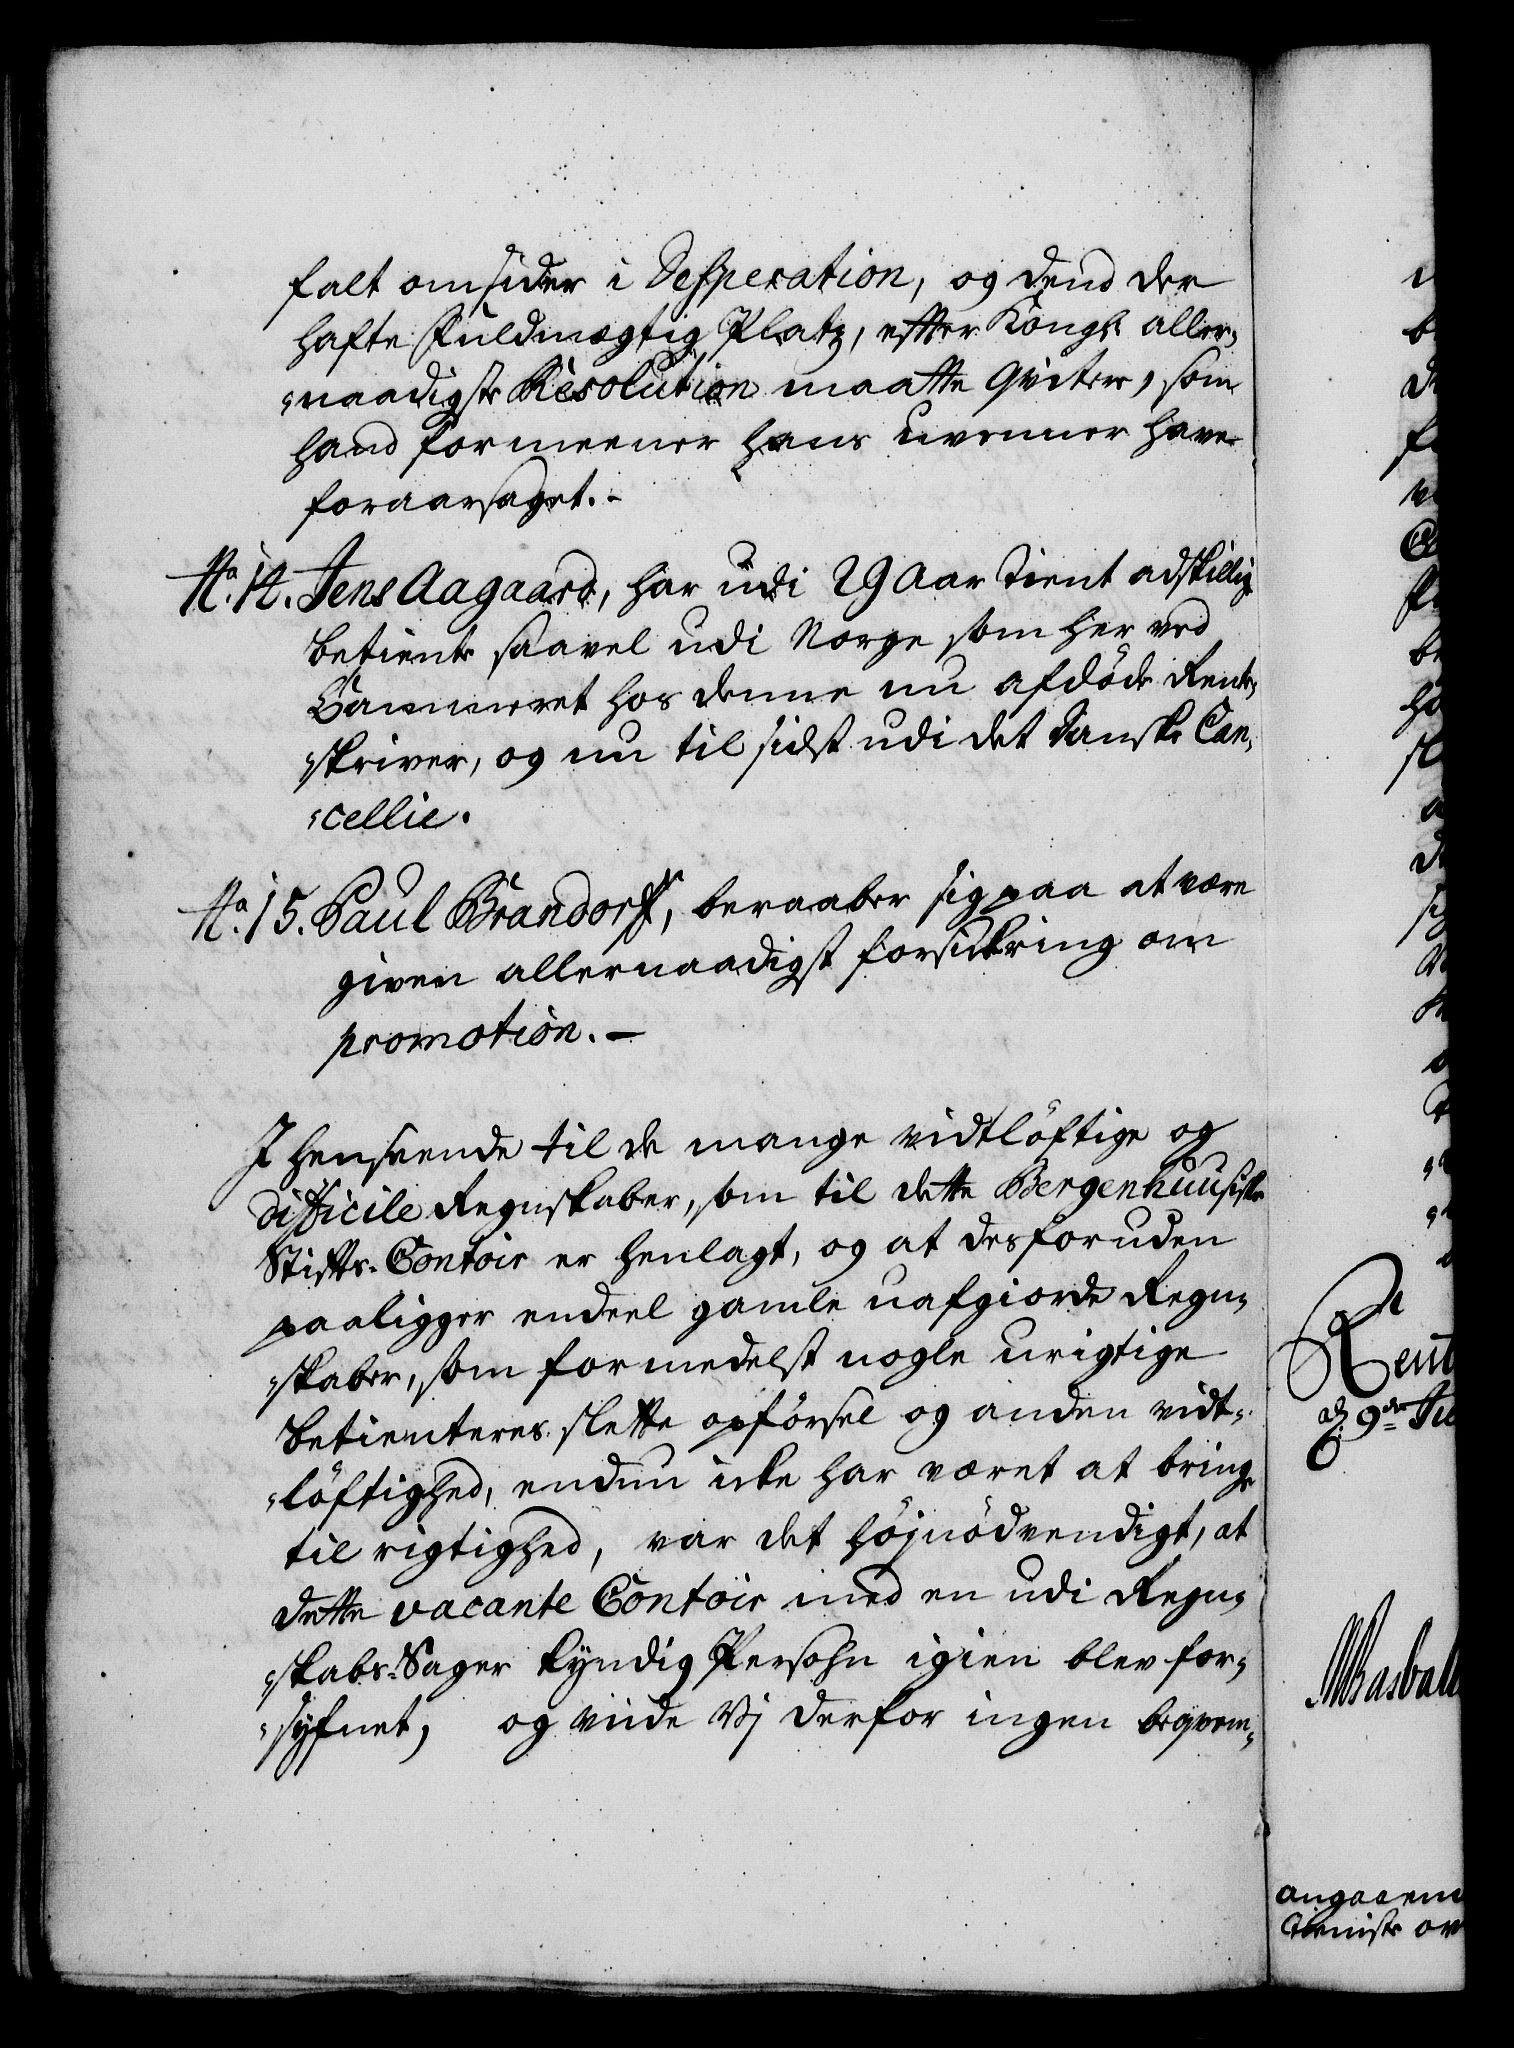 falt omsider i Desperation, og dend der
hafte Fuldmægtig Platz, efter Kongl. aller-
naadigste Resolution maatte qvitere, som
hand formeener hans uvenner have
foraarsaget. -
No. 14. Jens Aagaard, har udi 29 Aar tient adskillige
betiente saavel udi Norge som her ved
Cammeret hos denne nu afdøde Rente-
skriver, og nu til sidst udi det Danske Can-
cellie.
No. 15. Paul Brandorff, beraaber sig paa at være
given allernaadigst forsikring om
promotion. -
I henseende til de mange vidtløftige og
difficile Regnskaber, som til dette Bergenhuusiske
Stifts-Contoir er henlagt, og at desforuden
paaligger endeel gamle uafgiorde Regn-
skaber, som formedelst nogle urigtige
betienteres slette opførsel og anden vidt-
løftighed, endnu icke har været at bringe
til rigtighed, var det højnødvendigt, at
dette vacante Contoir med en udi Regn-
skabs-Sager kyndig Persohn igien blev for-
syfnet, og viide Vj derfor ingen beqvem-
Rent
d. 9de Ju
angaaen